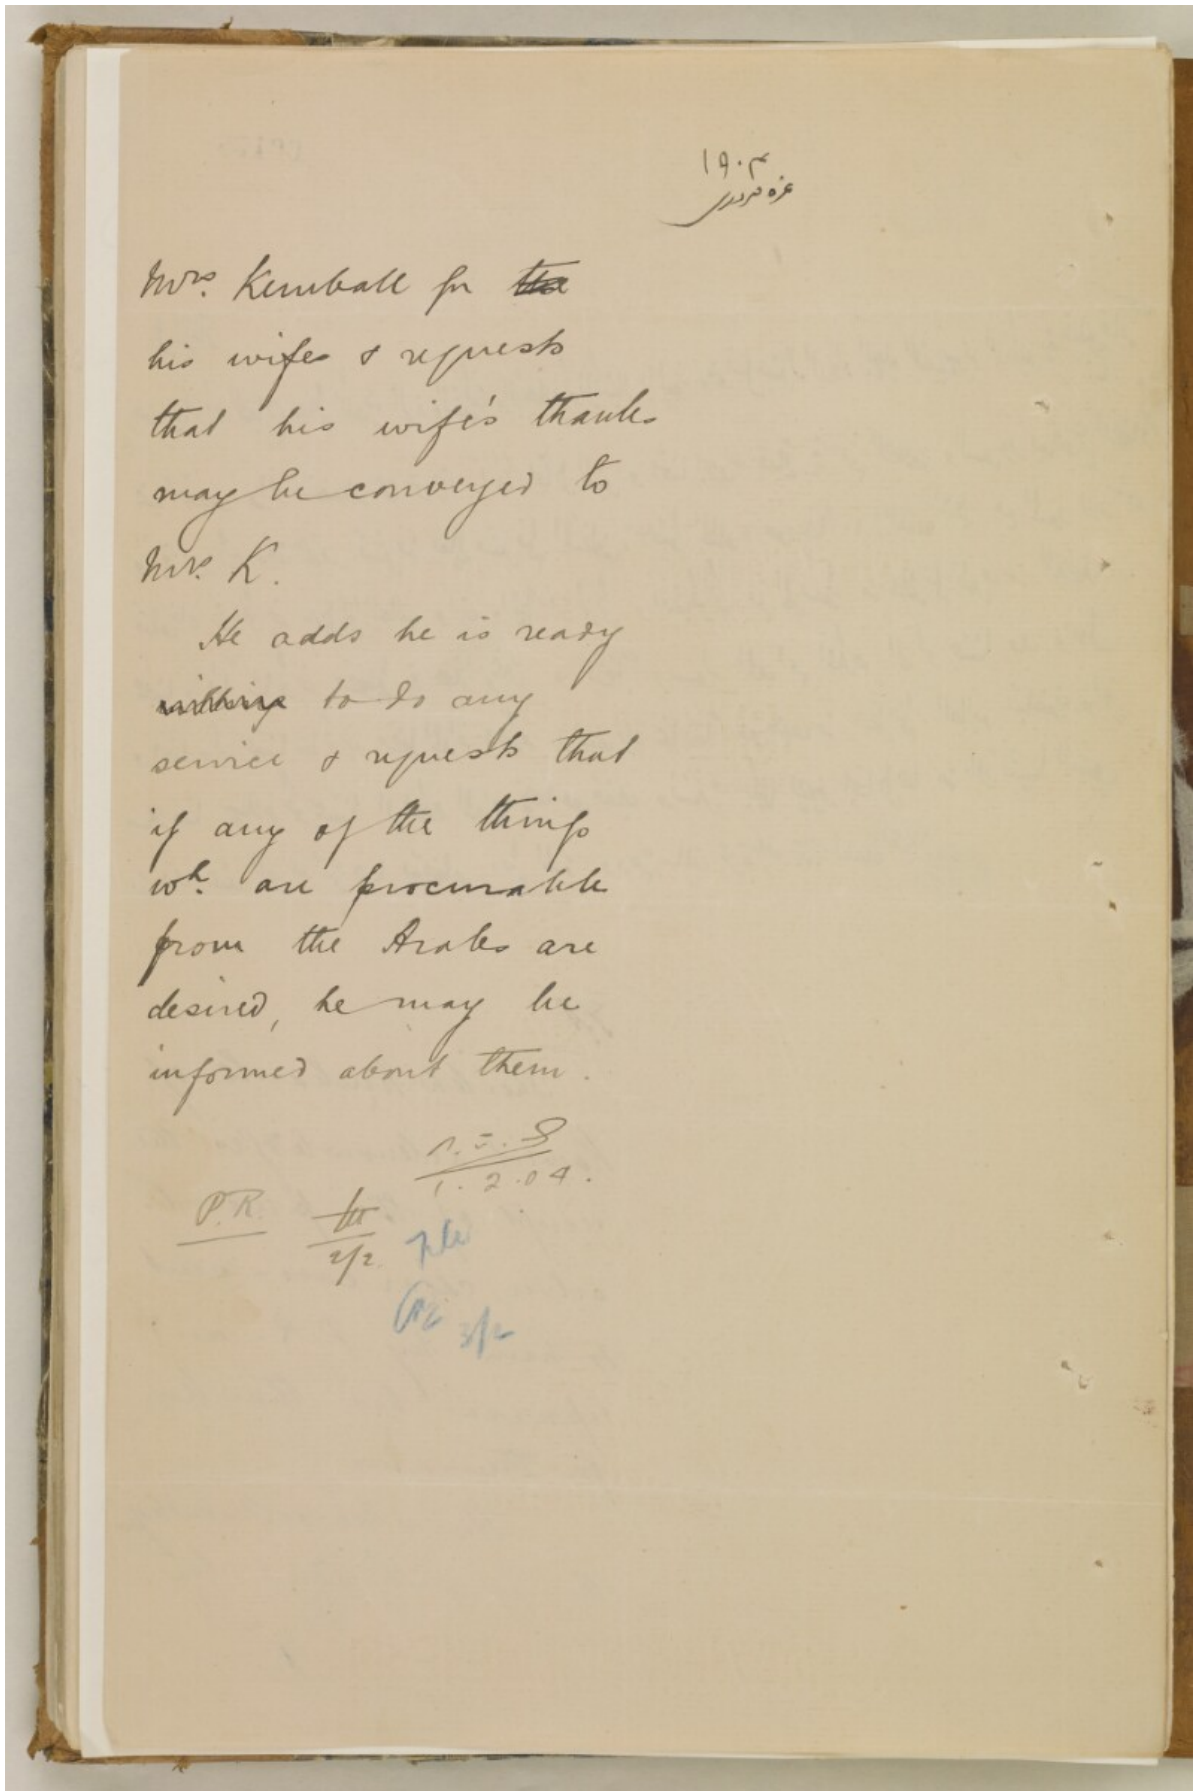 ١٩٠٤
غرة فروری
Mrs. Kemball for the
his wife & requests
that his wife's thanks
may be conveyed to
Mrs. K.
He adds he is ready
willing to do any
service & requests that
if any of the things
wh. are procurable
from the Arabs are
desired, he may be
informed about them.
1.2.04.
P.R.
2/2
3/2